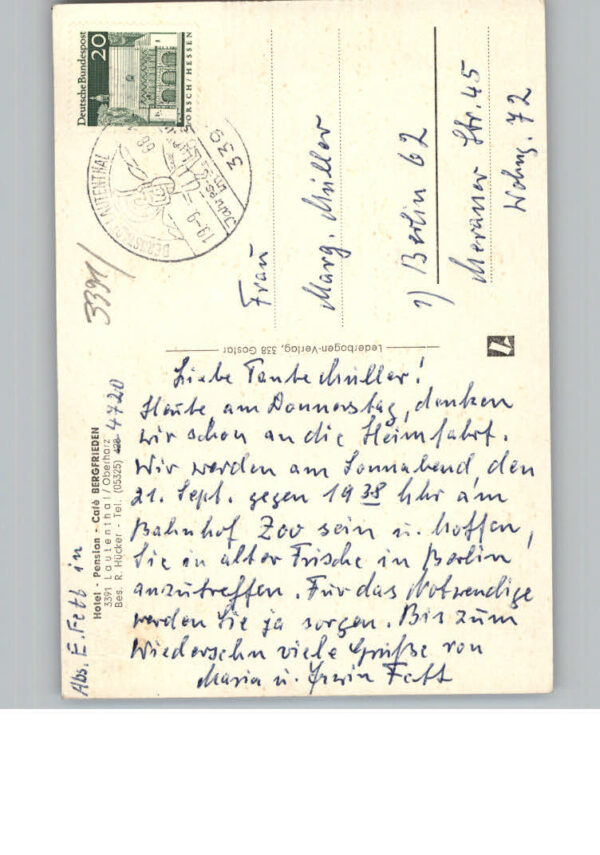 Deutsche Bundespost
20
LORSCH/HESSEN
BERGSTADT LAUTENTHAL
19-9
68
339
3391/
Frau
Marg. Müller
1) Berlin 62
Meraner Str. 45
Wohng. 72
Lederbogen-Verlag, 338 Goslar
Liebe Tante Müller!
Heute, am Donnerstag, denken
wir schon an die Heimfahrt.
Wir werden am Sonnabend, den
21. Sept. gegen 19 38 Uhr am
Bahnhof Zoo sein u. hoffen,
Sie in alter Frische in Berlin
anzutreffen. Für das Notwendige
werden Sie ja sorgen. Bis zum
Wiedersehn viele Grüße von
Maria u. Erwin Fett
Abs. E. Fett in
Hotel - Pension - Café BERGFRIEDEN
3391 Lautenthal/Oberharz
Bes. R. Hücker - Tel. (05325) 4720